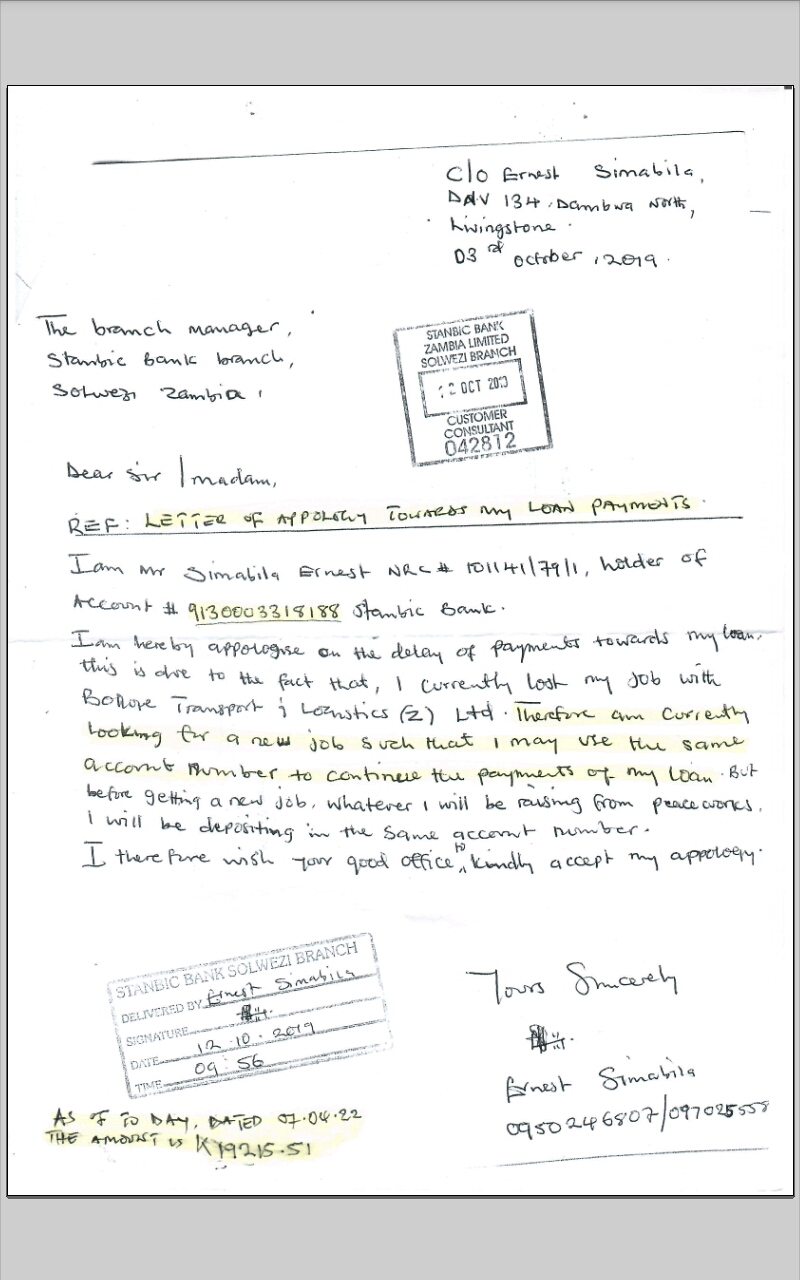 C/O Ernest Simabila,
DN/V 134, Dambwa North,
Livingstone.
03rd October, 2019.
The branch manager,
Stanbic Bank branch,
Solwezi Zambia,
STANBIC BANK
ZAMBIA LIMITED
SOLWEZI BRANCH
12 OCT 2019
CUSTOMER
CONSULTANT
042812
Dear Sir/madam,
REF: LETTER OF APPOLOGY TOWARDS MY LOAN PAYMENTS.
I am Mr Simabila Ernest NRC # 101141/79/1, holder of
Account # 9130003318188 Stanbic Bank.
I am hereby appologise on the delay of payments towards my loan.
this is due to the fact that, I currently lost my job with
Transport & Logistics (Z) Ltd. Therefore am currently
looking for a new job such that I may use the same
account number to continue the payments of my loan. But
before getting a new job, whatever I will be raising from peaceworks,
I will be depositing in the same account number.
I therefore wish your good office to kindly accept my appology.
STANBIC BANK SOLWEZI BRANCH
DELIVERED BY Ernest Simabila
SIGNATURE
DATE 12.10.2019
TIME 09:56
Yours Sincerely
Ernest Simabila
0950246807/097025558
AS OF TO DAY, DATED 07.04.22
THE AMOUNT IS K19215.51